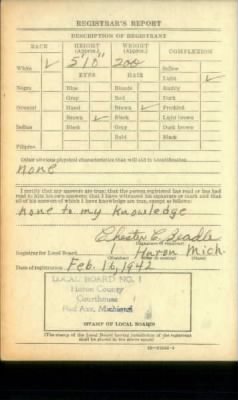 REGISTRAR'S REPORT
DESCRIPTION OF REGISTRANT
RACE HEIGHT (Approx.) WEIGHT (Approx.) COMPLEXION
White ✓ 5'10" 200 Sallow
EYES HAIR Light ✓
Negro Blue Blonde Ruddy
Gray Red Dark
Oriental Hazel Brown ✓ Freckled
Brown ✓ Black Light brown
Indian Black Gray Dark brown
Bald Black
Filipino
Other obvious physical characteristics that will aid in identification
None
I certify that my answers are true; that the person registered has read or has had
read to him his own answers; that I have witnessed his signature or mark and that
all of his answers of which I have knowledge are true, except as follows:
None to my Knowledge
Chester E.
(Signature of registrar)
Registrar for Local Board Huron Mich.
(Number) (City or county) (State)
Date of registration Feb. 16, 1942
LOCAL BOARD NO. 1
Huron County
Courthouse
Bad Axe, Michigan
STAMP OF LOCAL BOARD
(The stamp of the Local Board having jurisdiction of the registrant
shall be placed in the above space)